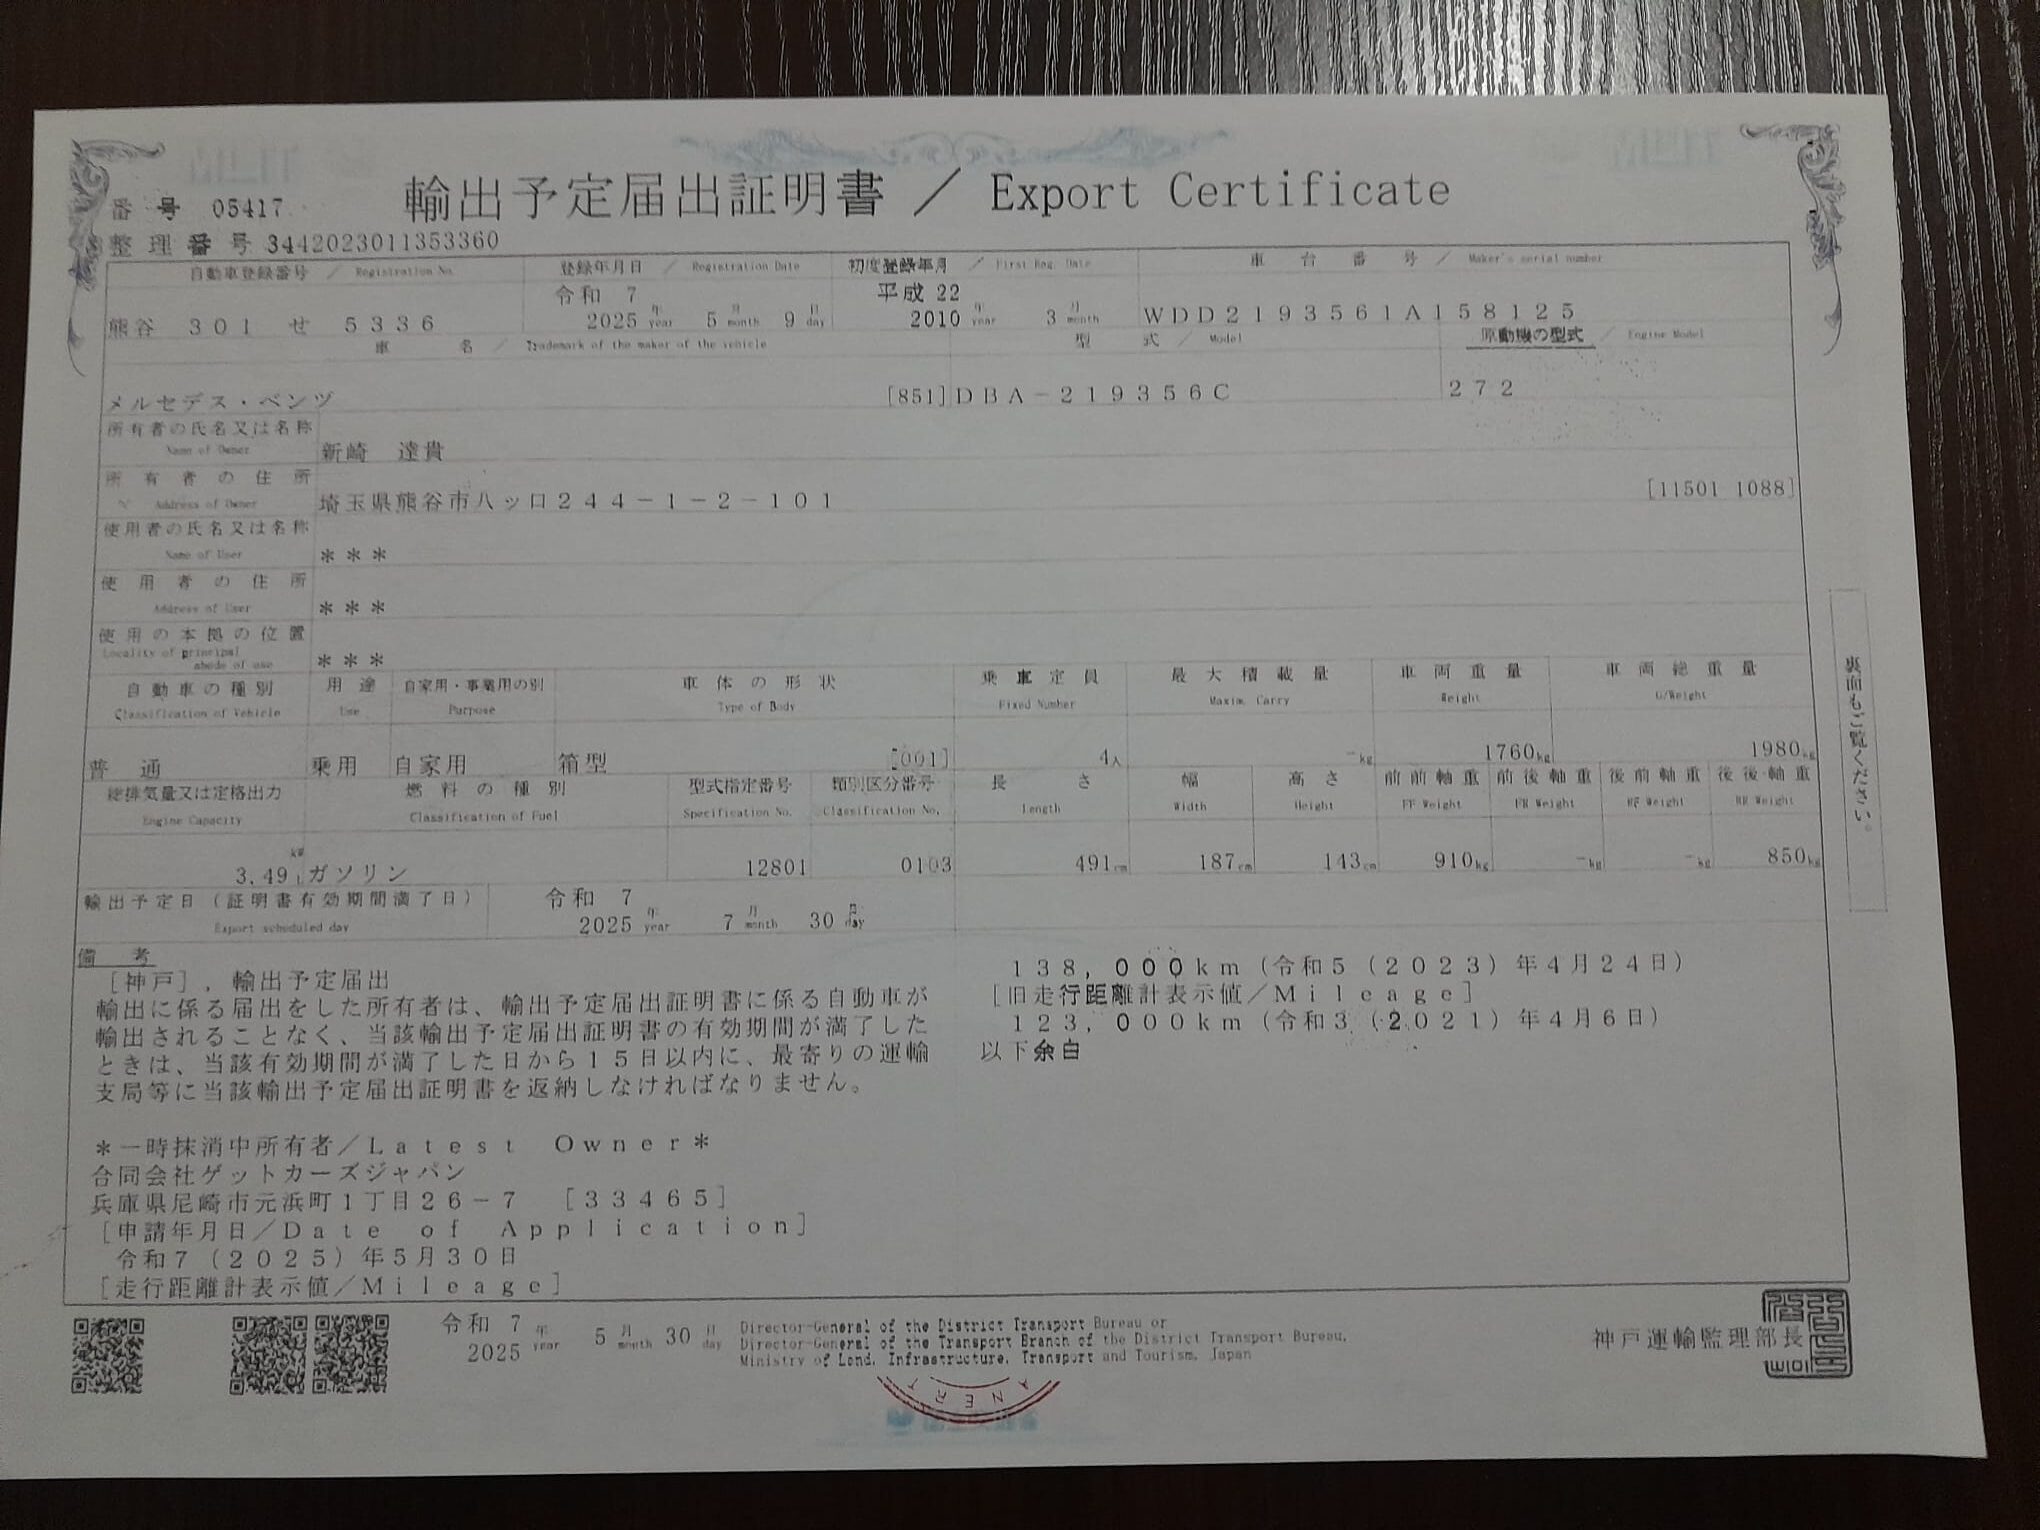 輸出予定届出証明書 ／ Export Certificate
番 号 05417
整 理 番 号 34420230113533​60
自動車登録番号 ／ Registration No.
登録年月日 ／ Registration Date
初度登録年月 ／ First Reg. Date
車 台 番 号 ／ Maker's serial number
熊谷 301 せ 5336
令和 7
2025 年 year 5 月 month 9 日 day
平成 22
2010 年 year 3 月 month
WDD2193561A158125
車 名 ／ Trademark of the maker of the vehicle
型 式 ／ Model
原動機の型式 ／ Engine Model
メルセデス・ベンツ
[851] DBA－219356C
272
所有者の氏名又は名称
Name of Owner
新崎 達貴
所 有 者 の 住 所
Address of Owner
埼玉県熊谷市八ッ口244－1－2－101
[11501 1088]
使用者の氏名又は名称
Name of User
＊＊＊
使 用 者 の 住 所
Address of User
＊＊＊
使 用 の 本 拠 の 位 置
Locality of principal
abode of use
＊＊＊
自 動 車 の 種 別
Classification of Vehicle
用 途
Use
自家用・事業用の別
Purpose
車 体 の 形 状
Type of Body
乗 車 定 員
Fixed Number
最 大 積 載 量
Maxim. Carry
車 両 重 量
Weight
車 両 総 重 量
G/Weight
普 通
乗用
自家用
箱型
[001]
4人
－kg
1760kg
1980kg
総排気量又は定格出力
Engine Capacity
燃 料 の 種 別
Classification of Fuel
型式指定番号
Specification No.
類別区分番号
Classification No.
長 さ
Length
幅
Width
高 さ
Height
前 前 軸 重
FF Weight
前 後 軸 重
FR Weight
後 前 軸 重
RF Weight
後 後 軸 重
RR Weight
kW
3.49 l
ガソリン
12801
0103
491cm
187cm
143cm
910kg
－kg
－kg
850kg
輸 出 予 定 日 （ 証 明 書 有 効 期 間 満 了 日 ）
Export scheduled day
令和 7
2025 年 year 7 月 month 30 日 day
備 考
[神戸]，輸出予定届出
輸出に係る届出をした所有者は、輸出予定届出証明書に係る自動車が
輸出されることなく、当該輸出予定届出証明書の有効期間が満了した
ときは、当該有効期間が満了した日から15日以内に、最寄りの運輸
支局等に当該輸出予定届出証明書を返納しなければなりません。
＊一時抹消中所有者／Latest Owner＊
合同会社ゲットカーズジャパン
兵庫県尼崎市元浜町1丁目26－7 [33465]
[申請年月日／Date of Application]
令和7（2025）年5月30日
[走行距離計表示値／Mileage]
138，000km（令和5（2023）年4月24日）
[旧走行距離計表示値／Mileage]
123，000km（令和3（2021）年4月6日）
以下余白
裏面もご覧ください。
令和 7
2025 年 year 5 月 month 30 日 day
Director-General of the District Transport Bureau or
Director-General of the Transport Branch of the District Transport Bureau,
Ministry of Land, Infrastructure, Transport and Tourism, Japan
神戸運輸監理部長